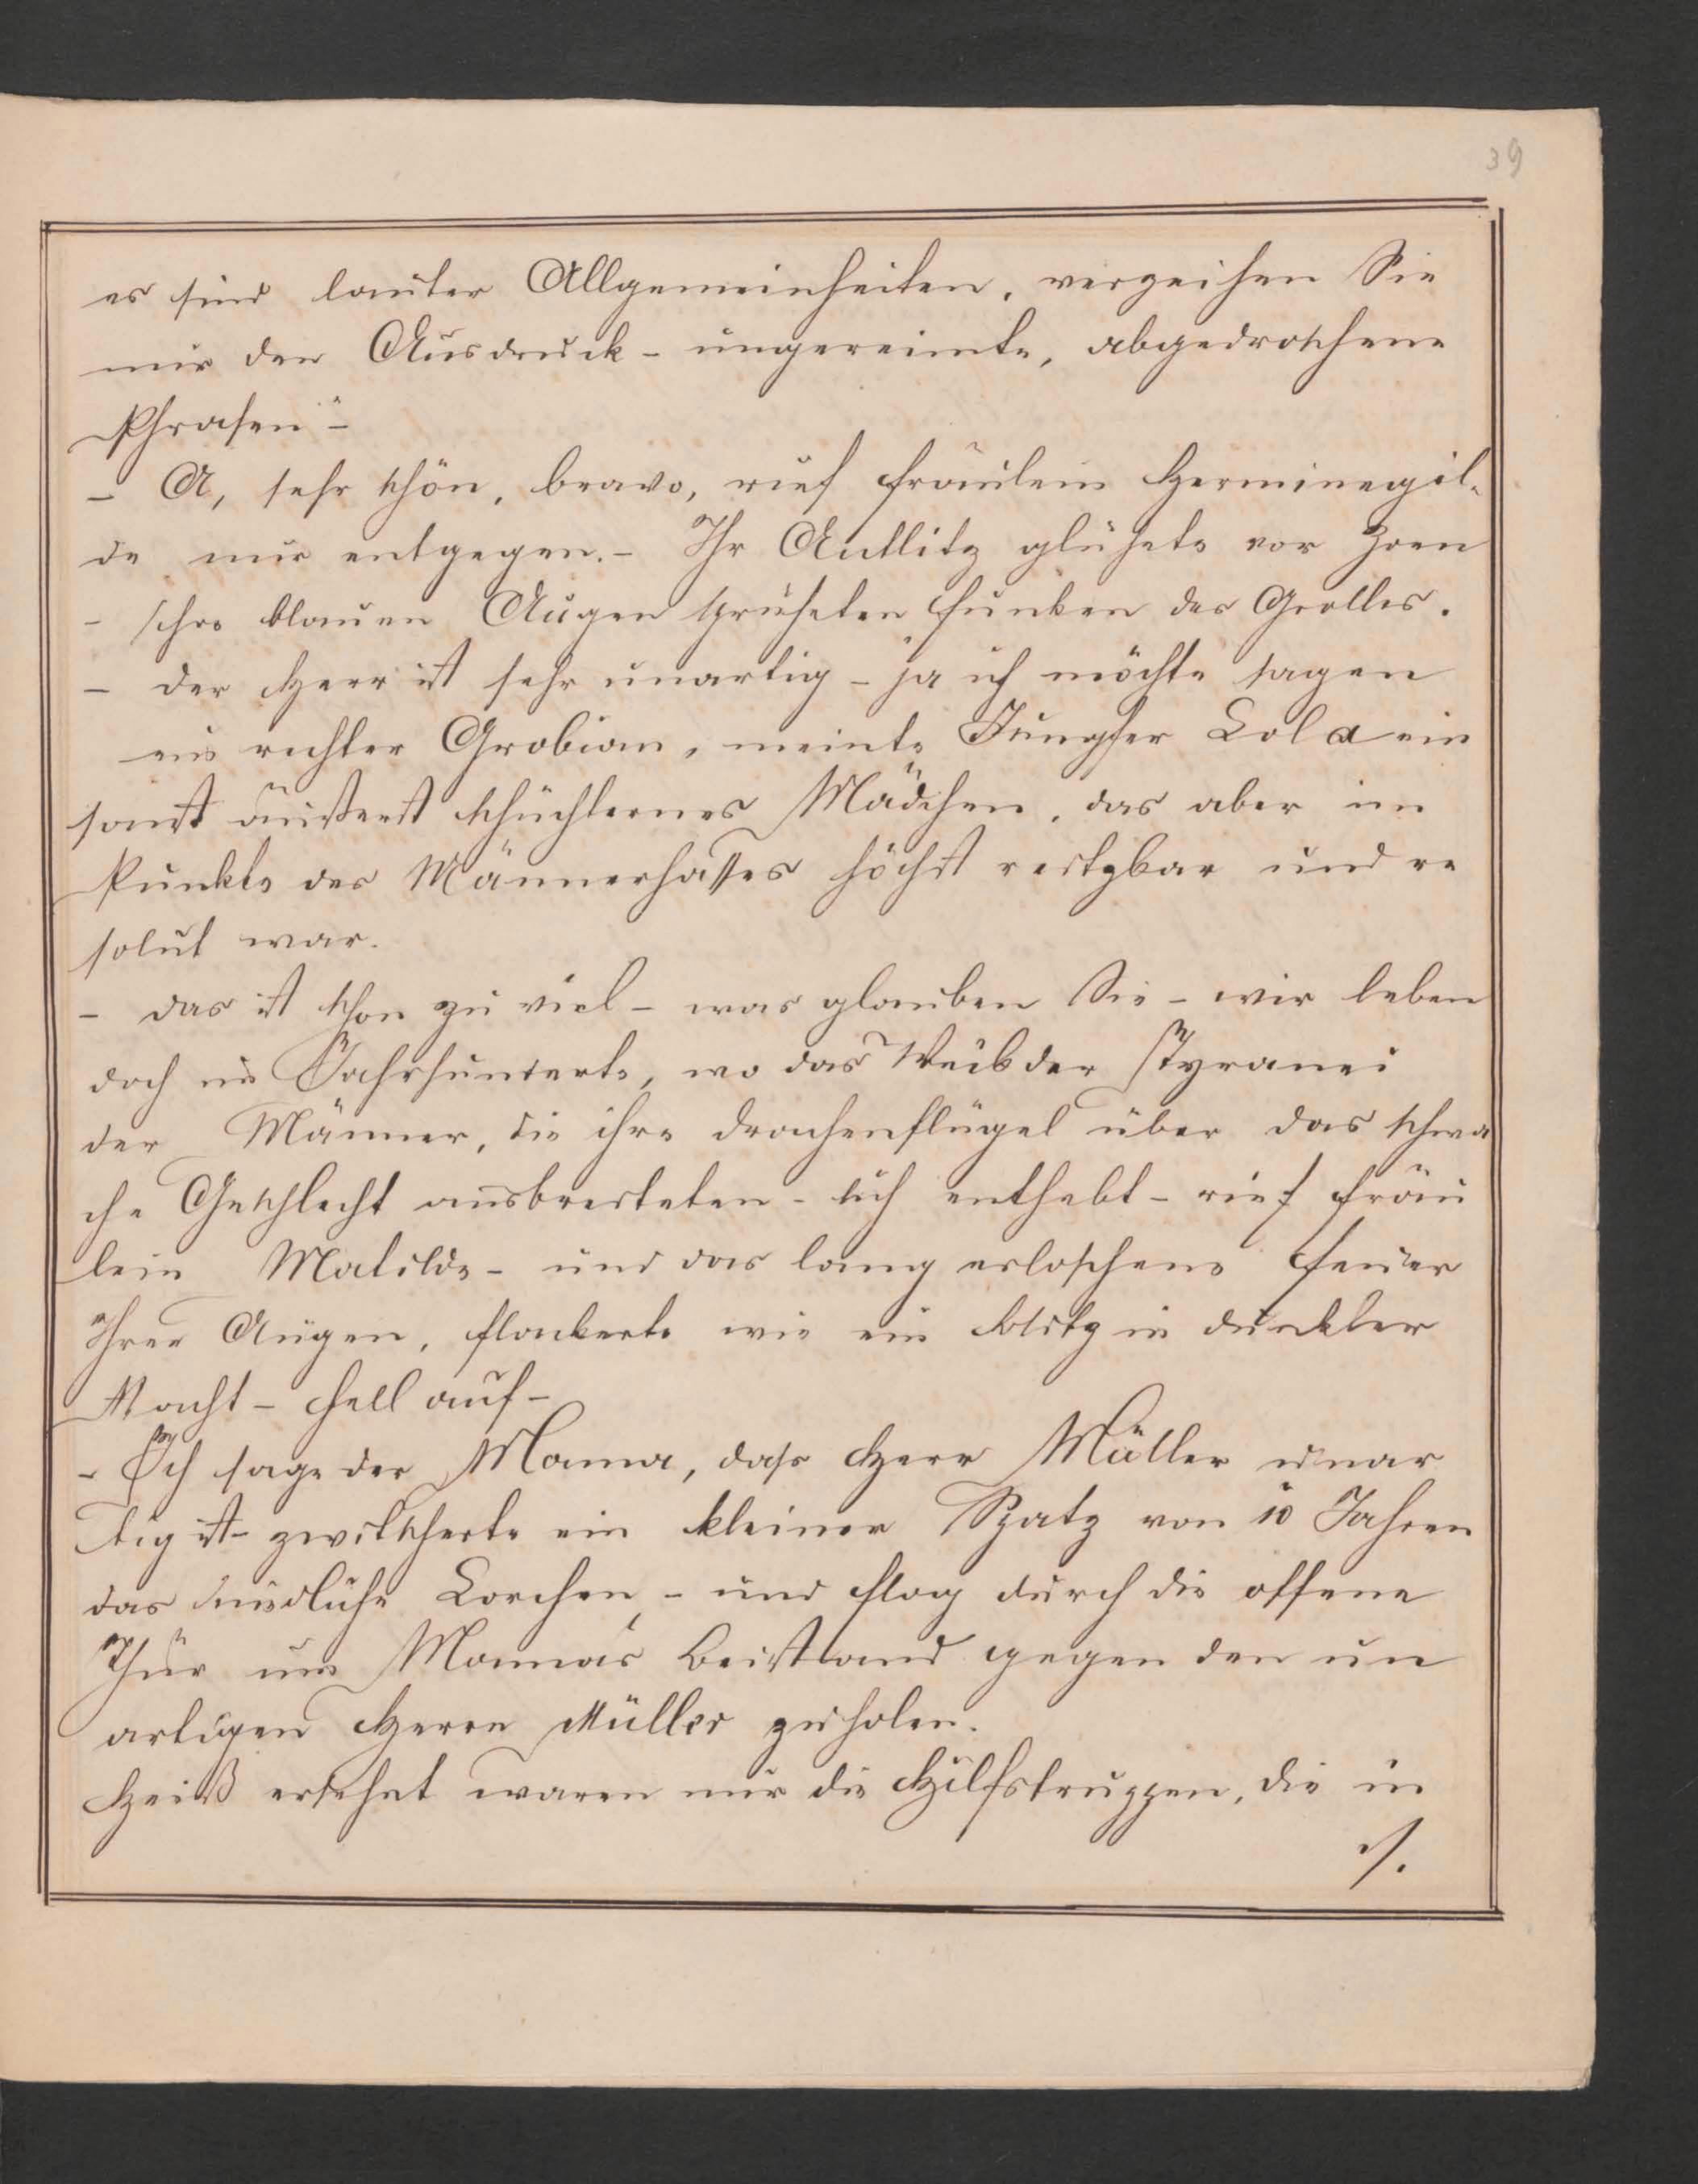 39
es sind lauter Allgemeinheiten, verzeihen Sie
mir den Ausdruck - ungereimte, abgedroschene
Phrasen" -
- A, sehr schön, bravo, rief Fräulein Herminegil-
de mir entgegen. - Ihr Antlitz glühete vor Zorn
- Ihre blauen Augen sprüheten Funken des Grolles.
- Der Herr ist sehr unartig - ja ich möchte sagen
ein rechter Grobian, meinte Jungfer Lola ein
sonst äußerst schüchternes Mädchen, das aber im
Punkte des Männerhasses höchst reitzbar und re
solut war.
- Das ist schon zu viel - was glauben Sie - wir leben
doch im Jahrhunderte, wo das Weib der Tyranei
der Männer, die ihre Drachenflügel über das schwa
che Geschlecht ausbreiteten - sich enthebt - rief Fräu
lein Matilde - und das lang erloschene Feuer
Ihrer Augen, flackerte wie ein Blitz in dunkler
Nacht - hell auf -
- Ich sage der Mama, dass Herr Müller unar
tig ist - zwitscherte ein kleiner Spatz von 10 Jahren
das niedliche Lorchen, - und flog durch die offene
Thür um Mamas Beistand gegen den un
artigen Herrn Müller zu holen.
Heiß ersehnt waren mir die Hilfstruppen, die in
./.